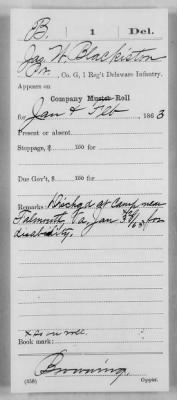 B. 1 Del.
Jas. W. Blackiston
Pv., Co. G, 1 Reg't Delaware Infantry.
Appears on
Company Muster Roll
for Jan & Feb, 1863
Present or absent
Stoppage, $ 100 for
Due Gov't, $ 100 for
Remarks: Dischgd at Camp near
Falmouth, Va, Jan 63 for
disability.
X As on roll.
Book mark:
Browning.
(358) Copyist.